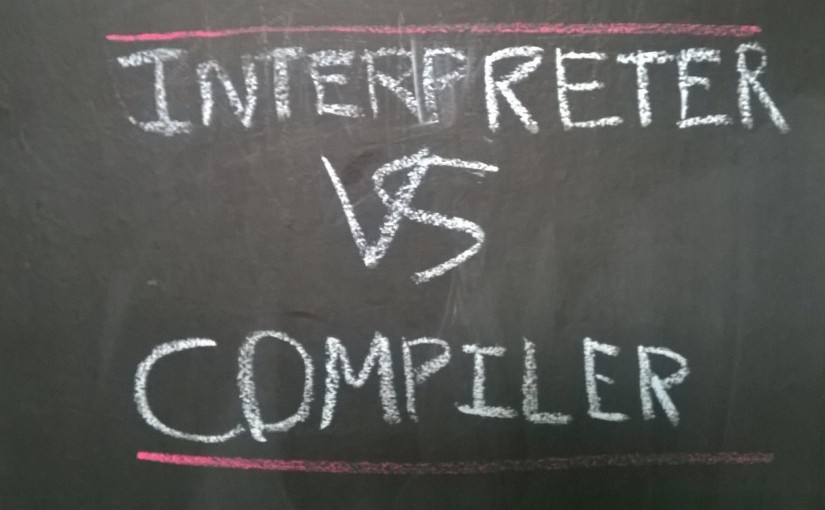 INTERPRETER
VS
COMPILER